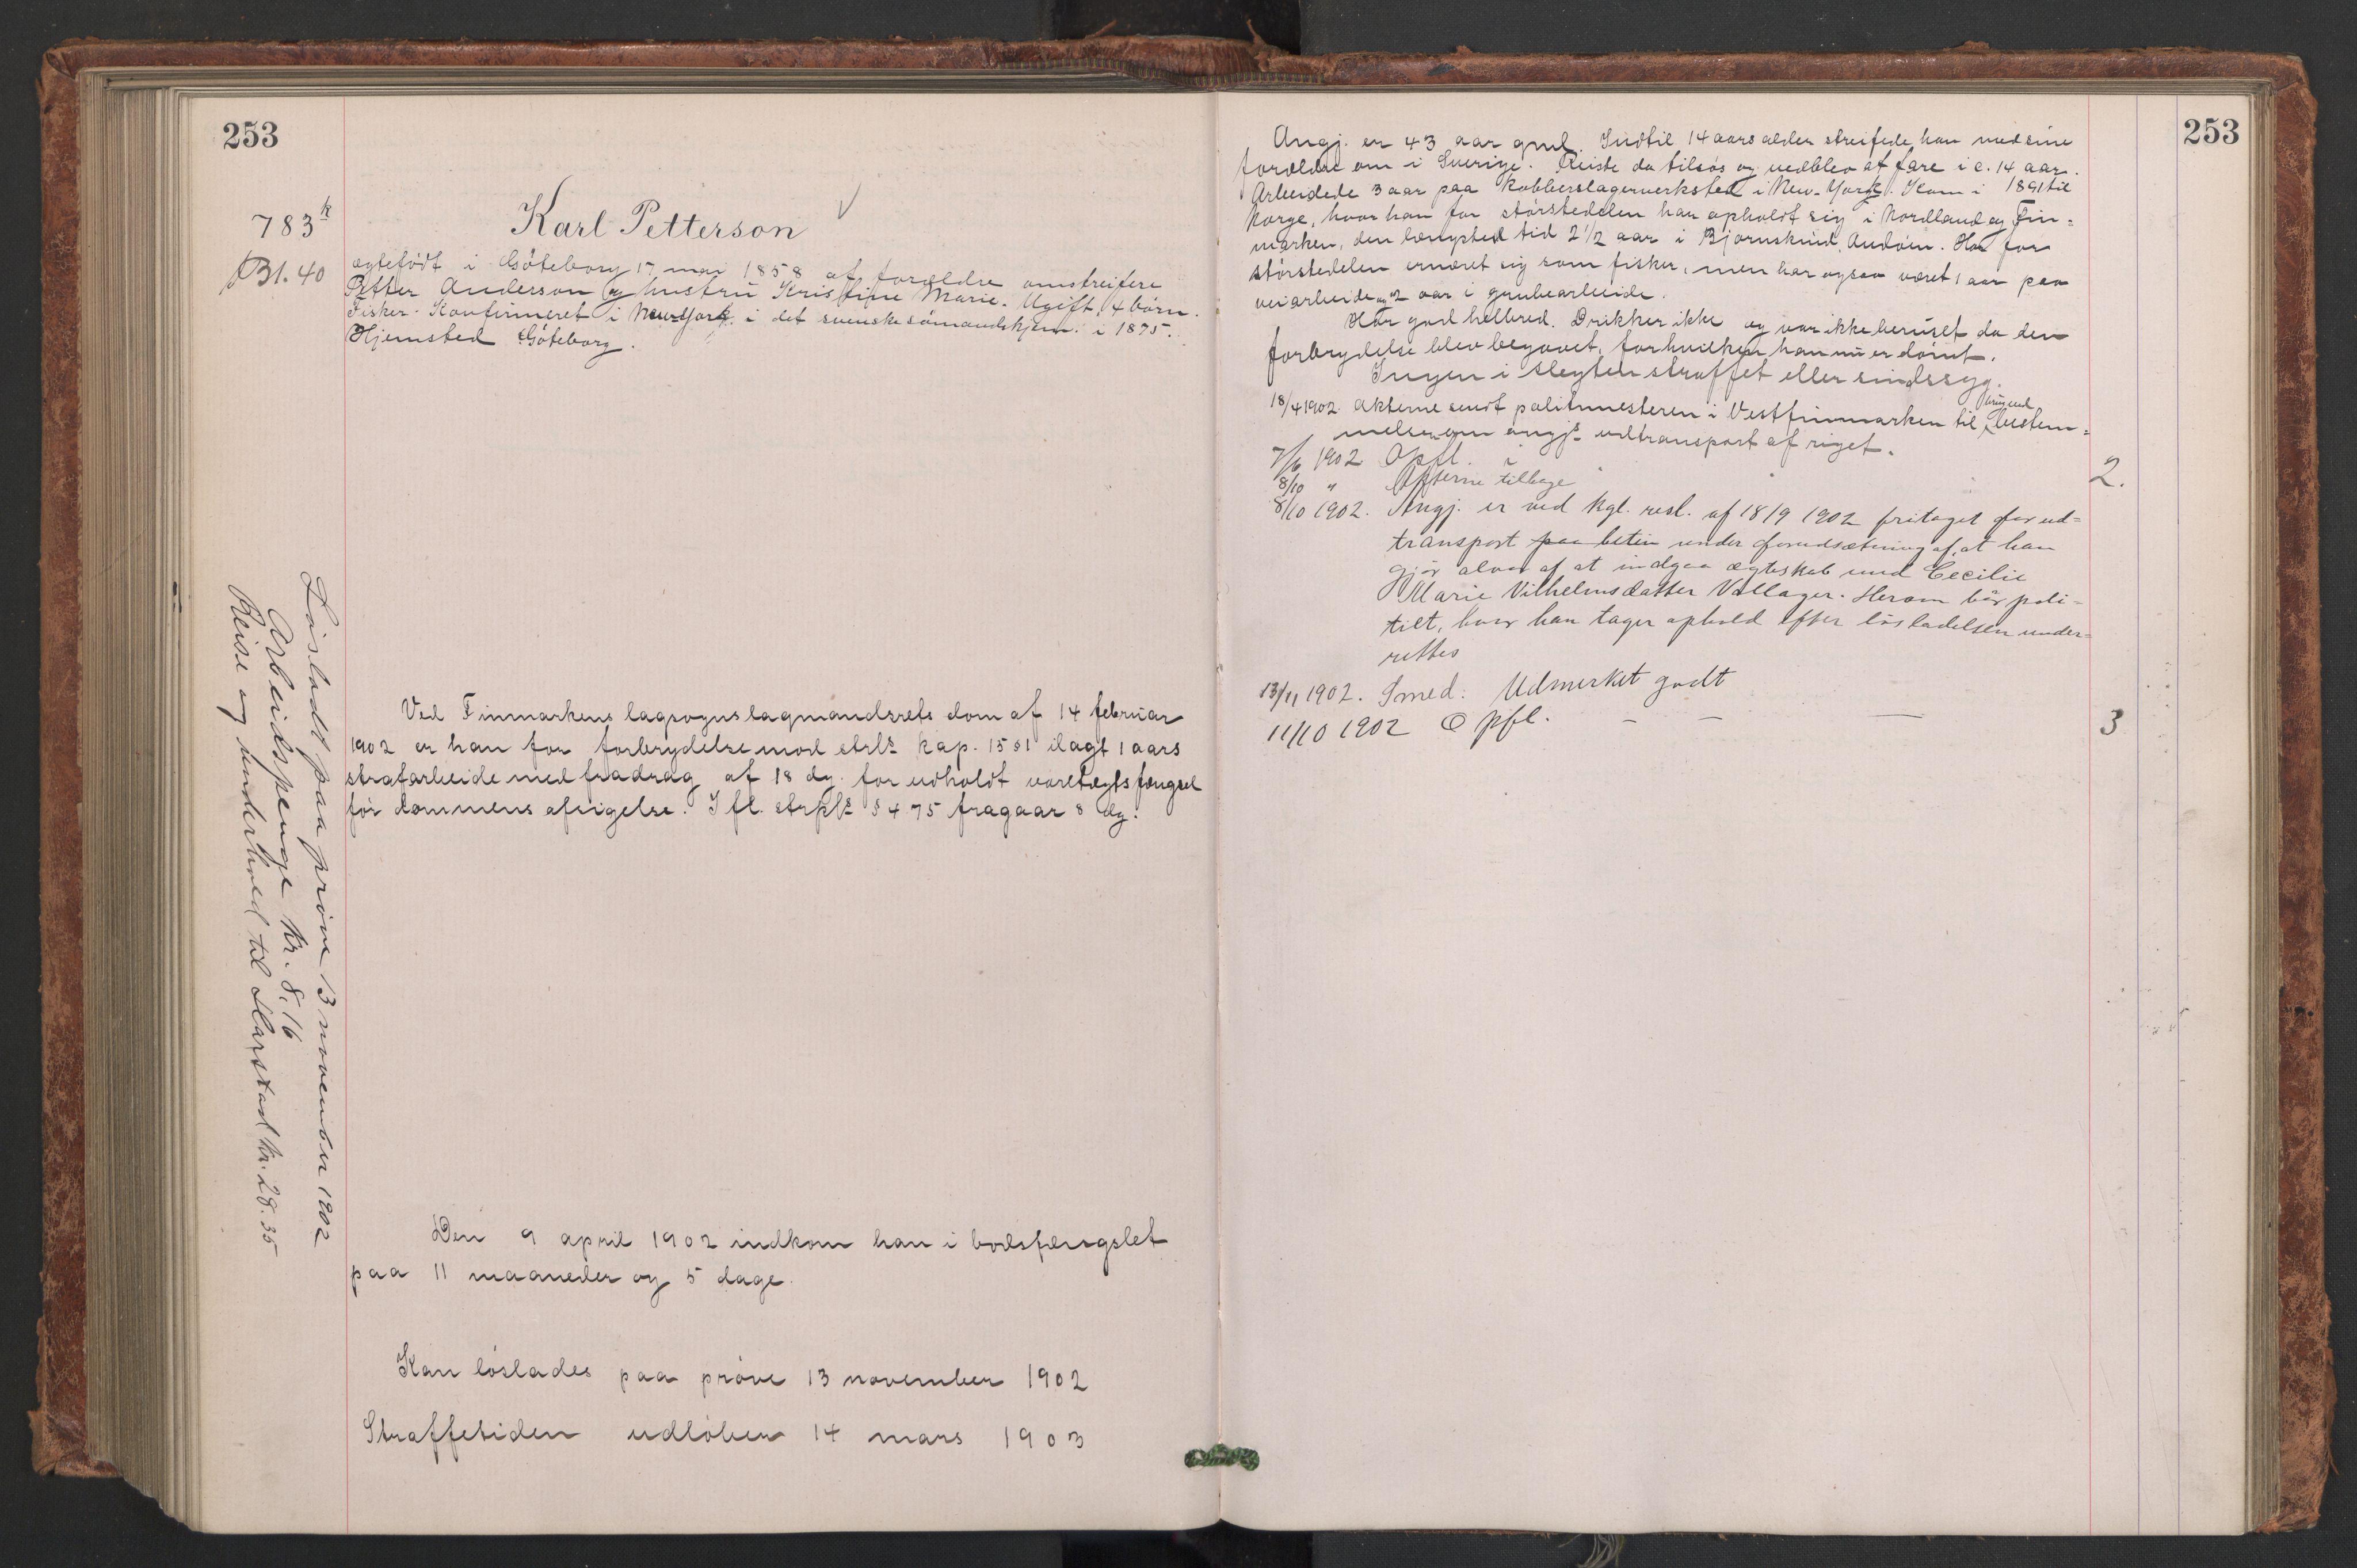 253
783k
B1.40
Karl Petterson
ægtefödt i Göteborg 17 mai 1858 af forældre omstreifere
Petter Anderson og hustru Kristine Marie. Ugift, 4 börn.
Fisker. Konfirmeret i New York i det svenske sömandshjem i 1875.
Hjemsted Göteborg.
Ved Finmarkens lagsogns lagmandsrets dom af 14 februar
1902 er han for forbrydelse mod strls kap. 15 § 1 ilagt 1 aars
strafarbeide med fradrag af 18 dg. for udholdt varetægtsfængsel
för dommens afsigelse. Ifl. strpls § 475 fragaar 8 dg.
Den 9 april 1902 indkom han i bodsfængslet
paa 11 maaneder og 5 dage.
Kan löslades paa pröve 13 november 1902
Straffetiden udlöber 14 mars 1903
Lösladt paa pröve 13 november 1902
Arbeidspenge kr. 8,16
Reise og underhold til Harstad kr. 28.35
253
Angj. er 43 aar gml. Indtil 14 aars alder streifede han med sine
forældre om i Sverige. Reiste da tilsös og vedblev at fare i c. 14 aar.
Arbeidede 3 aar paa kobberslagerverksted i New-York. Kom i 1891 til
Norge, hvor han for störstedelen har opholdt sig i Nordland og Fin=
marken, den længsted tid 2 1/2 aar i Bjørnskind, Andøen. Har for
störstedelen ernæret sig som fisker, men har ogsaa været 1 aar paa
veiarbeide og 2 aar i grubearbeide.
Har god helbred. Drikker ikke og var ikke beruset da den
forbrydelse blev begaaet, for hvilken han nu er dömt.
Ingen i slegten straffet eller sindssyg.
18/4 1902 Akterne sendt politimesteren i Vestfinmarken til bestem=
melse om angjs udtransport af riget.
7/6 1902 Opfl.
8/10 " Akterne tilbage
8/10 1902. Angj. er ved kgl. resl. af 18/9 1902 fritaget for ud=
transport paa betin under forudsætning af, at han
gjör alvor af at indgaa ægteskab med Cecilie
Marie Vilhelmsdatter Vollager. Herom bör poli-
tiet, hvor han tager ophold efter lösladelsen under=
rettes
13/11 1902. Smed. Udmerket godt
11/10 1902 Opfl. – – –
2.
3